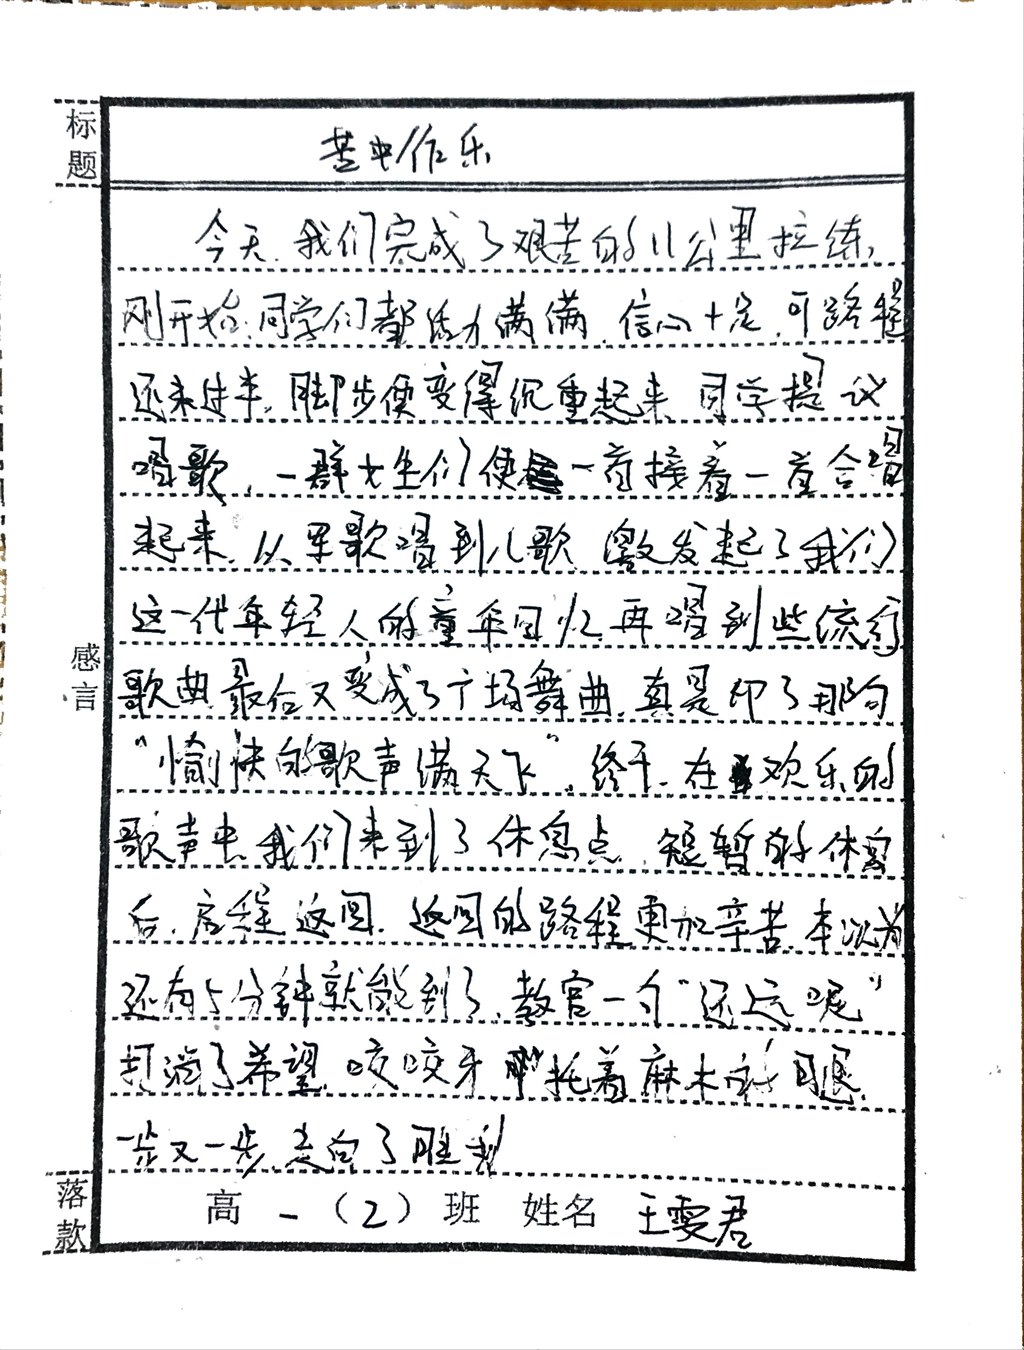 标题
苦中作乐
今天,我们完成了艰苦的11公里拉练,
刚开始,同学们都活力满满,信心十足,可路程
还未过半,脚步便变得沉重起来,同学提议
唱歌,一群女生们便一首接着一首合唱
起来,从军歌唱到儿歌,激发起了我们
这一代年轻人的童年回忆,再唱到些流行
歌曲,最后又变成了广场舞曲,真是印了那句
“愉快的歌声满天下”,终于,在欢乐的
歌声中,我们来到了休息点,短暂的休息
后,启程返回,返回的路程更加辛苦,本以为
还有5分钟就能到了,教官一句“还远呢”
打消了希望,咬咬牙,托着麻木的腿,
一步又一步,走向了胜利
感言
落款
高一(2)班 姓名 王雯君